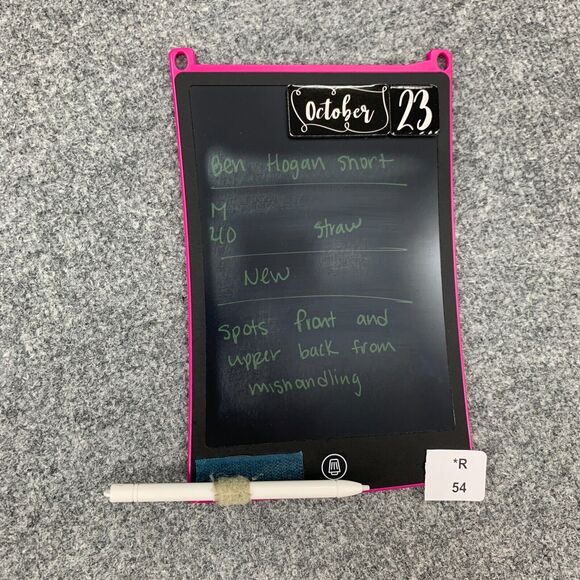 October 23
Ben Hogan short
M
40 straw
New
spots front and
upper back from
mishandling
*R
54